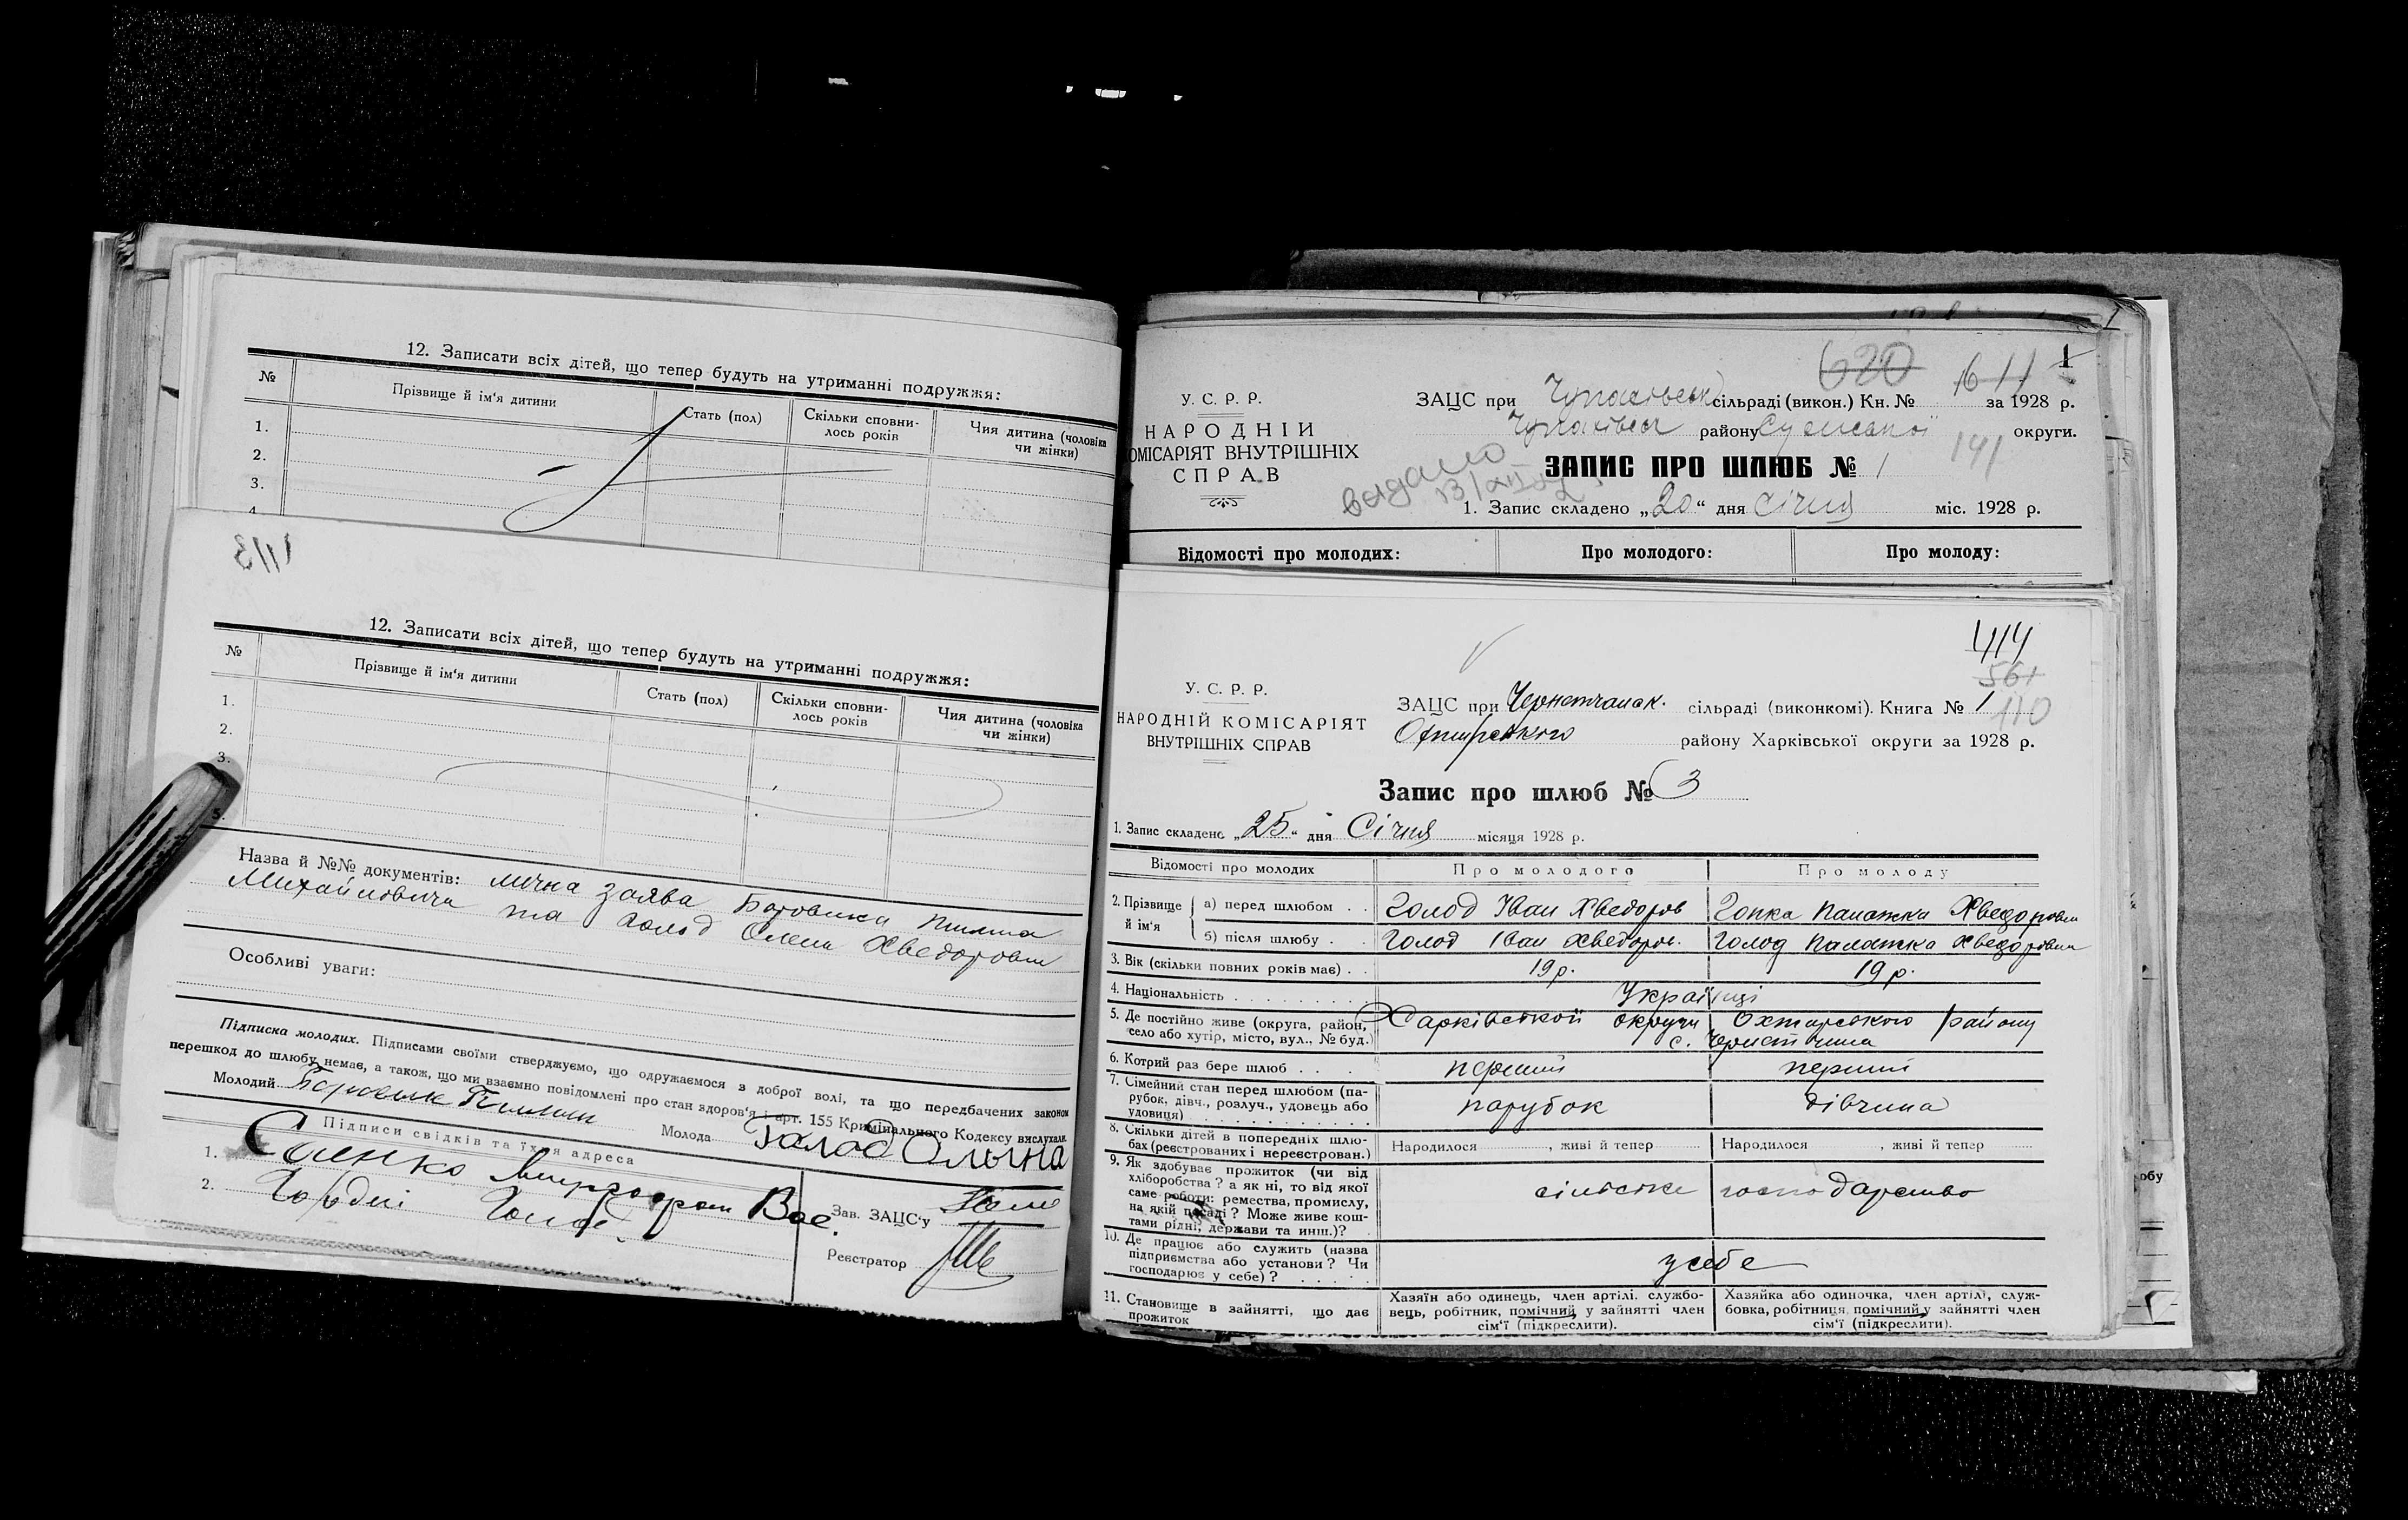 12. Записати всіх дітей, що тепер будуть на утриманні подружжя:
№ Прізвище й ім'я дитини Стать (пол) Скільки сповнилось років Чия дитина (чоловіка чи жінки)
1.
2.
3.
4
1113
12. Записати всіх дітей, що тепер будуть на утриманні подружжя:
№ Прізвище й ім'я дитини Стать (пол) Скільки сповнилось років Чия дитина (чоловіка чи жінки)
1.
2.
3.
5.
Назва й №№ документів: лична заява Боровика Пилипа
Михайловича та Холод Олени Хведоровни
Особливі уваги:
Підписка молодих. Підписами своїми стверджуємо, що одружаємося з доброї волі, та що передбачених законом
перешкод до шлюбу немає, а також, що ми взаємно повідомлені про стан здоров'я і арт. 155 Кримінального Кодексу вислухали.
Молодий Боровик Пилип Молода Голод
Підписи свідків та їхня адреса
1. Саенко
2. Гордій Голод
Зав. ЗАЦС'у
Реєстратор
1
620 1611
У. С. Р. Р.
НАРОДНІЙ
КОМІСАРІЯТ ВНУТРІШНІХ
СПРАВ
ЗАЦС при Чупахівськ сільраді (викон.) Кн. № за 1928 р.
Чупахівськ району Сумської округи.
141
выдано
ЗАПИС ПРО ШЛЮБ № 1
1. Запис складено „20" дня Січня міс. 1928 р.
Відомості про молодих: Про молодого: Про молоду:
414
561
110
У. С. Р. Р.
НАРОДНІЙ КОМІСАРІЯТ
ВНУТРІШНІХ СПРАВ
ЗАЦС при Чернетчанськ. сільраді (виконкомі). Книга № 1
Охтирського району Харківської округи за 1928 р.
Запис про шлюб № 3
1. Запис складено „25" дня Січня місяця 1928 р.
Відомості про молодих Про молодого Про молоду
2. Прізвище й ім'я а) перед шлюбом . . Голод Іван Хведоров Гопка Палажка Хведоровна
б) після шлюбу . . Голод Іван Хведоров. Голод Палажка Хведоровна
3. Вік (скільки повних років має) . . 19 р. 19 р.
4. Національність . . . . . . . . . Українці
5. Де постійно живе (округа, район, Харківської округи Охтирського району
село або хутір, місто, вул., № буд.) с. Чернетчина
6. Котрий раз бере шлюб . . . перший перший
7. Сімейний стан перед шлюбом (парубок, дівч., розлуч., удовець або удовиця) . . . парубок дівчина
8. Скільки дітей в попередніх шлюбах (реєстрованих і нереєстрован.) Народилося , живі й тепер Народилося , живі й тепер
9. Як здобуває прожиток (чи від
хліборобства? а як ні, то від якої
саме роботи: ремества, промислу, сільське господарство
на якій посаді? Може живе коштами рідні, держави та инш.)?
10. Де працює або служить (назва
підприємства або установи? Чи
господарює у себе)? . . . . . у себе
11. Становище в зайнятті, що дає прожиток
Хазяїн або одинець, член артілі, службовець, робітник, помічний у зайнятті член сім'ї (підкреслити).
Хазяйка або одиночка, член артілі, службовка, робітниця, помічний у зайнятті член сім'ї (підкреслити).
обу